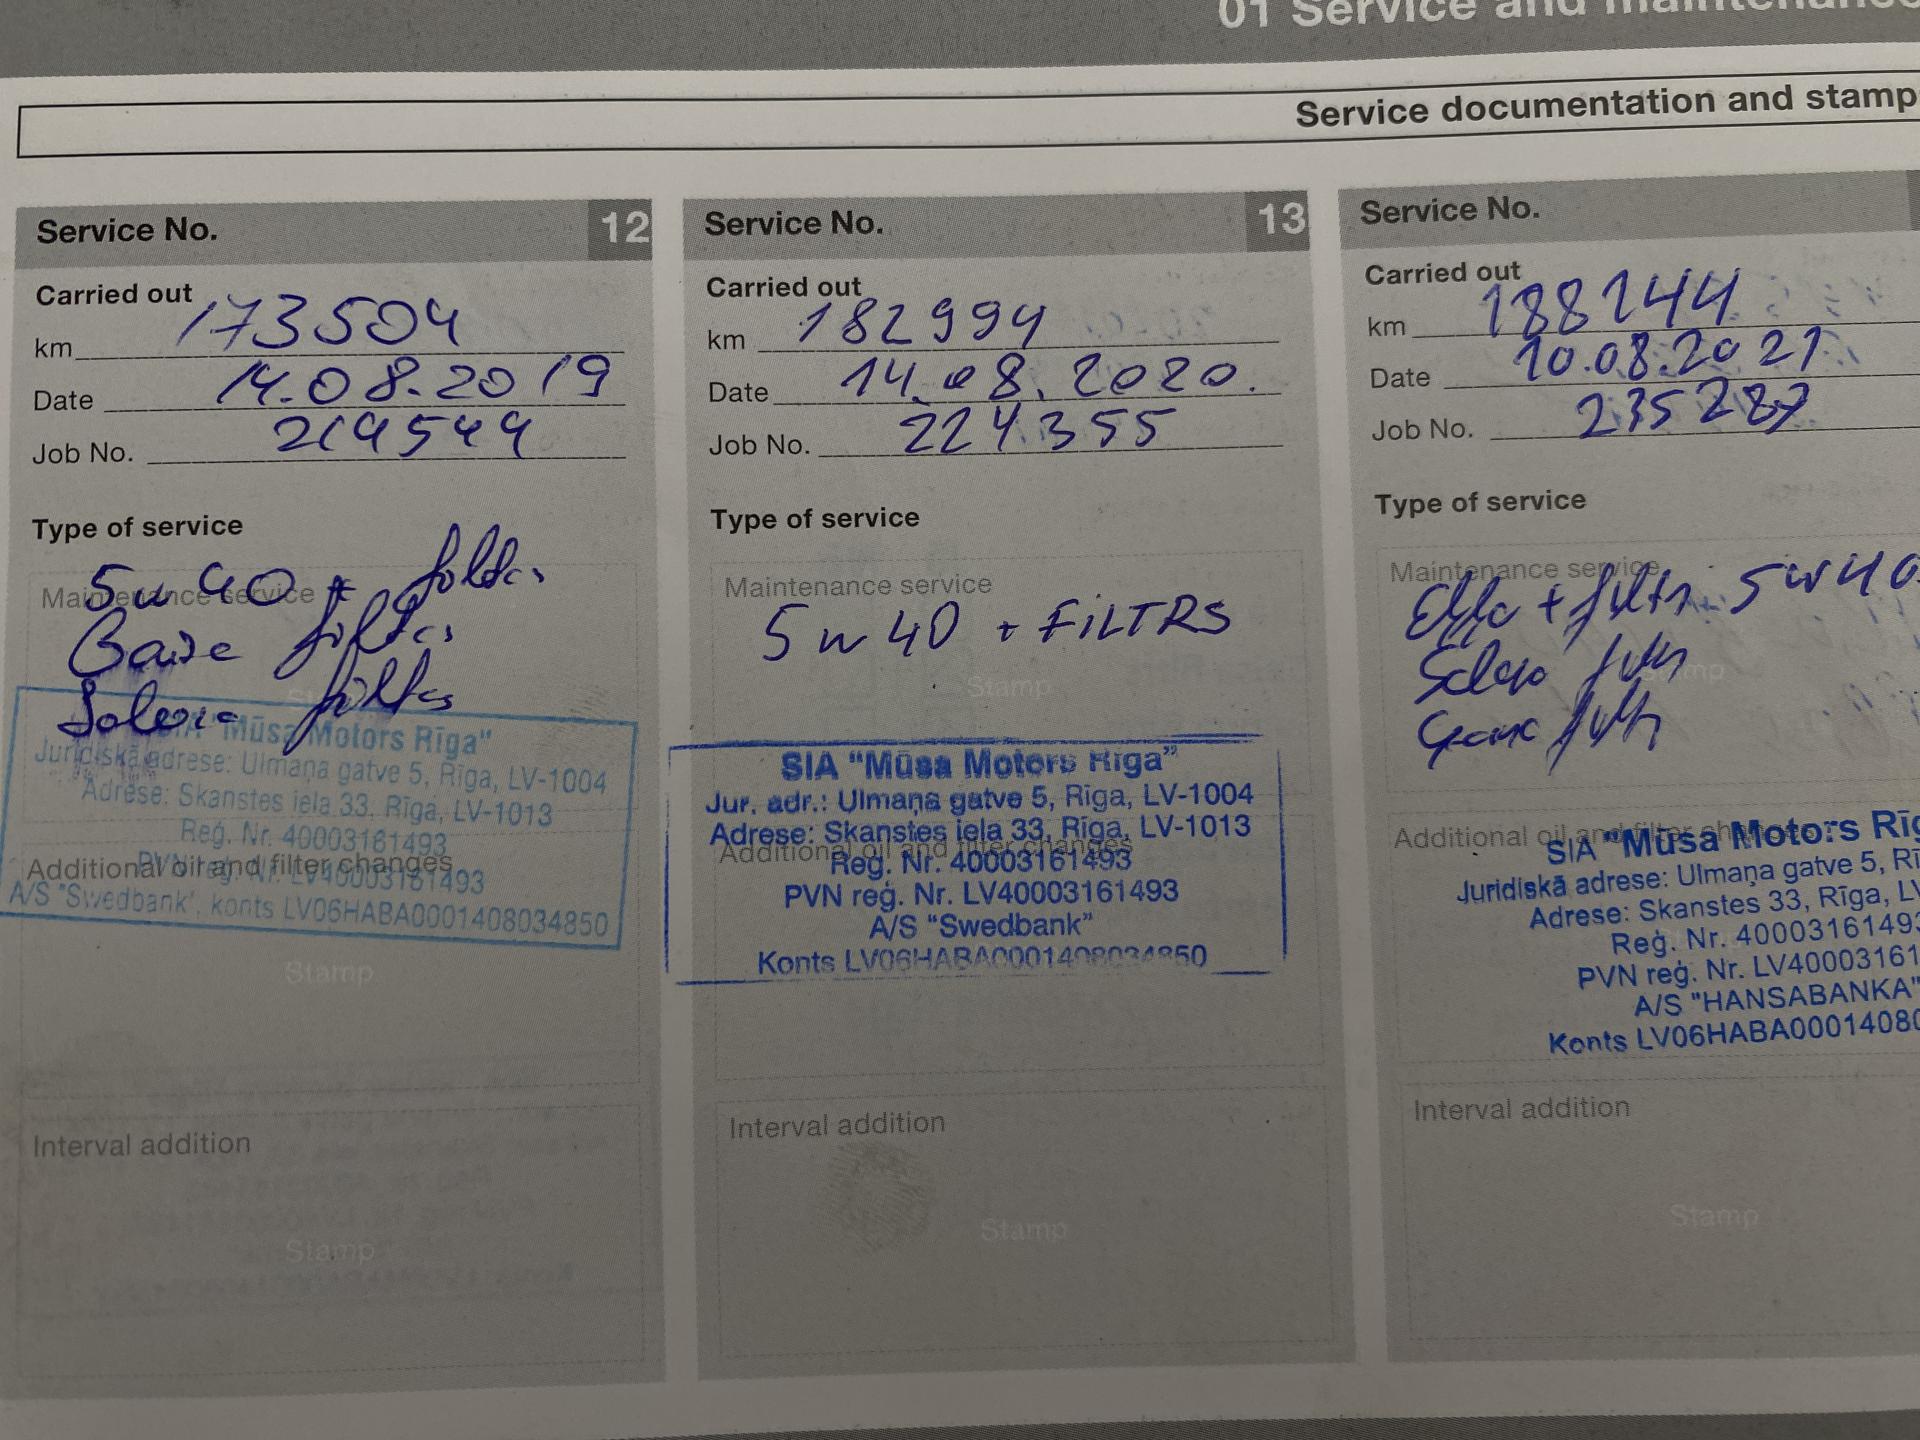 01 Service and maintenance
Service documentation and stamp
Service No. 12
Carried out
km 173504
Date 14.08.2019
Job No. 219544
Type of service
Maintenance service
5w40 + filtrs
Gaisa filtrs
Salona filtrs
Stamp
SIA "Mūsa Motors Rīga"
Juridiskā adrese: Ulmaņa gatve 5, Rīga, LV-1004
Adrese: Skanstes iela 33, Rīga, LV-1013
Reģ. Nr. 40003161493
PVN reģ. Nr. LV40003161493
A/S "Swedbank", konts LV06HABA0001408034850
Additional oil and filter changes
Stamp
Interval addition
Stamp
Service No. 13
Carried out
km 182994
Date 14.08.2020.
Job No. 224355
Type of service
Maintenance service
5w40 + FiLTRS
Stamp
SIA "Mūsa Motors Rīga"
Jur. adr.: Ulmaņa gatve 5, Rīga, LV-1004
Adrese: Skanstes iela 33, Rīga, LV-1013
Additional oil and filter changes
Reģ. Nr. 40003161493
PVN reģ. Nr. LV40003161493
A/S "Swedbank"
Konts LV06HABA0001408034850
Interval addition
Stamp
Service No.
Carried out
km 188144
Date 10.08.2021
Job No. 235287
Type of service
Maintenance service
Eļļa + filtrs 5w40
Salona filtrs
Gaisa filtrs
Stamp
Additional oil and filter changes
SIA "Mūsa Motors Rīg
Juridiskā adrese: Ulmaņa gatve 5, Rī
Adrese: Skanstes 33, Rīga, LV
Reģ. Nr. 4000316149
PVN reģ. Nr. LV40003161
A/S "HANSABANKA"
Konts LV06HABA0001408
Interval addition
Stamp